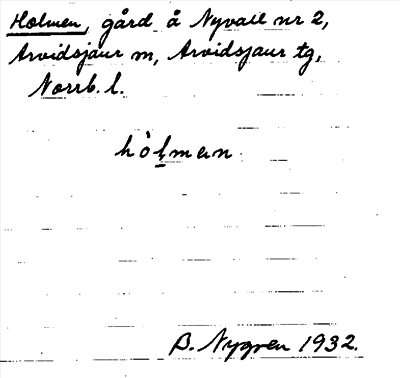 Holmen, gård å Nyvall nr 2,
Arvidsjaur m, Arvidsjaur tg,
Norrb. l.
hòlmen
B. Nygren 1932.